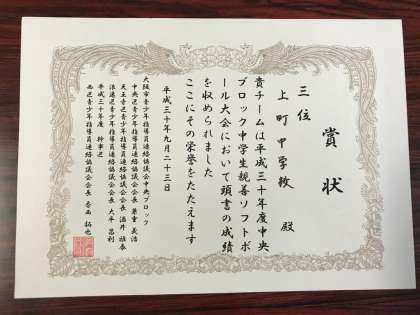 賞状
三位
上町中学校 殿
貴チームは平成三十年度中央
ブロック中学生親善ソフトボ
ール大会において頭書の成績
を収められました
ここにその栄誉をたたえます
平成三十年九月二十三日
大阪市青少年指導員連絡協議会中央ブロック
中央区青少年指導員連絡協議会会長 兼重 美浩
天王寺区青少年指導員連絡協議会会長 酒井 雄泰
浪速区青少年指導員連絡協議会会長 大平 昌利
平成三十年度 幹事区
西区青少年指導員連絡協議会会長 香西 拓也